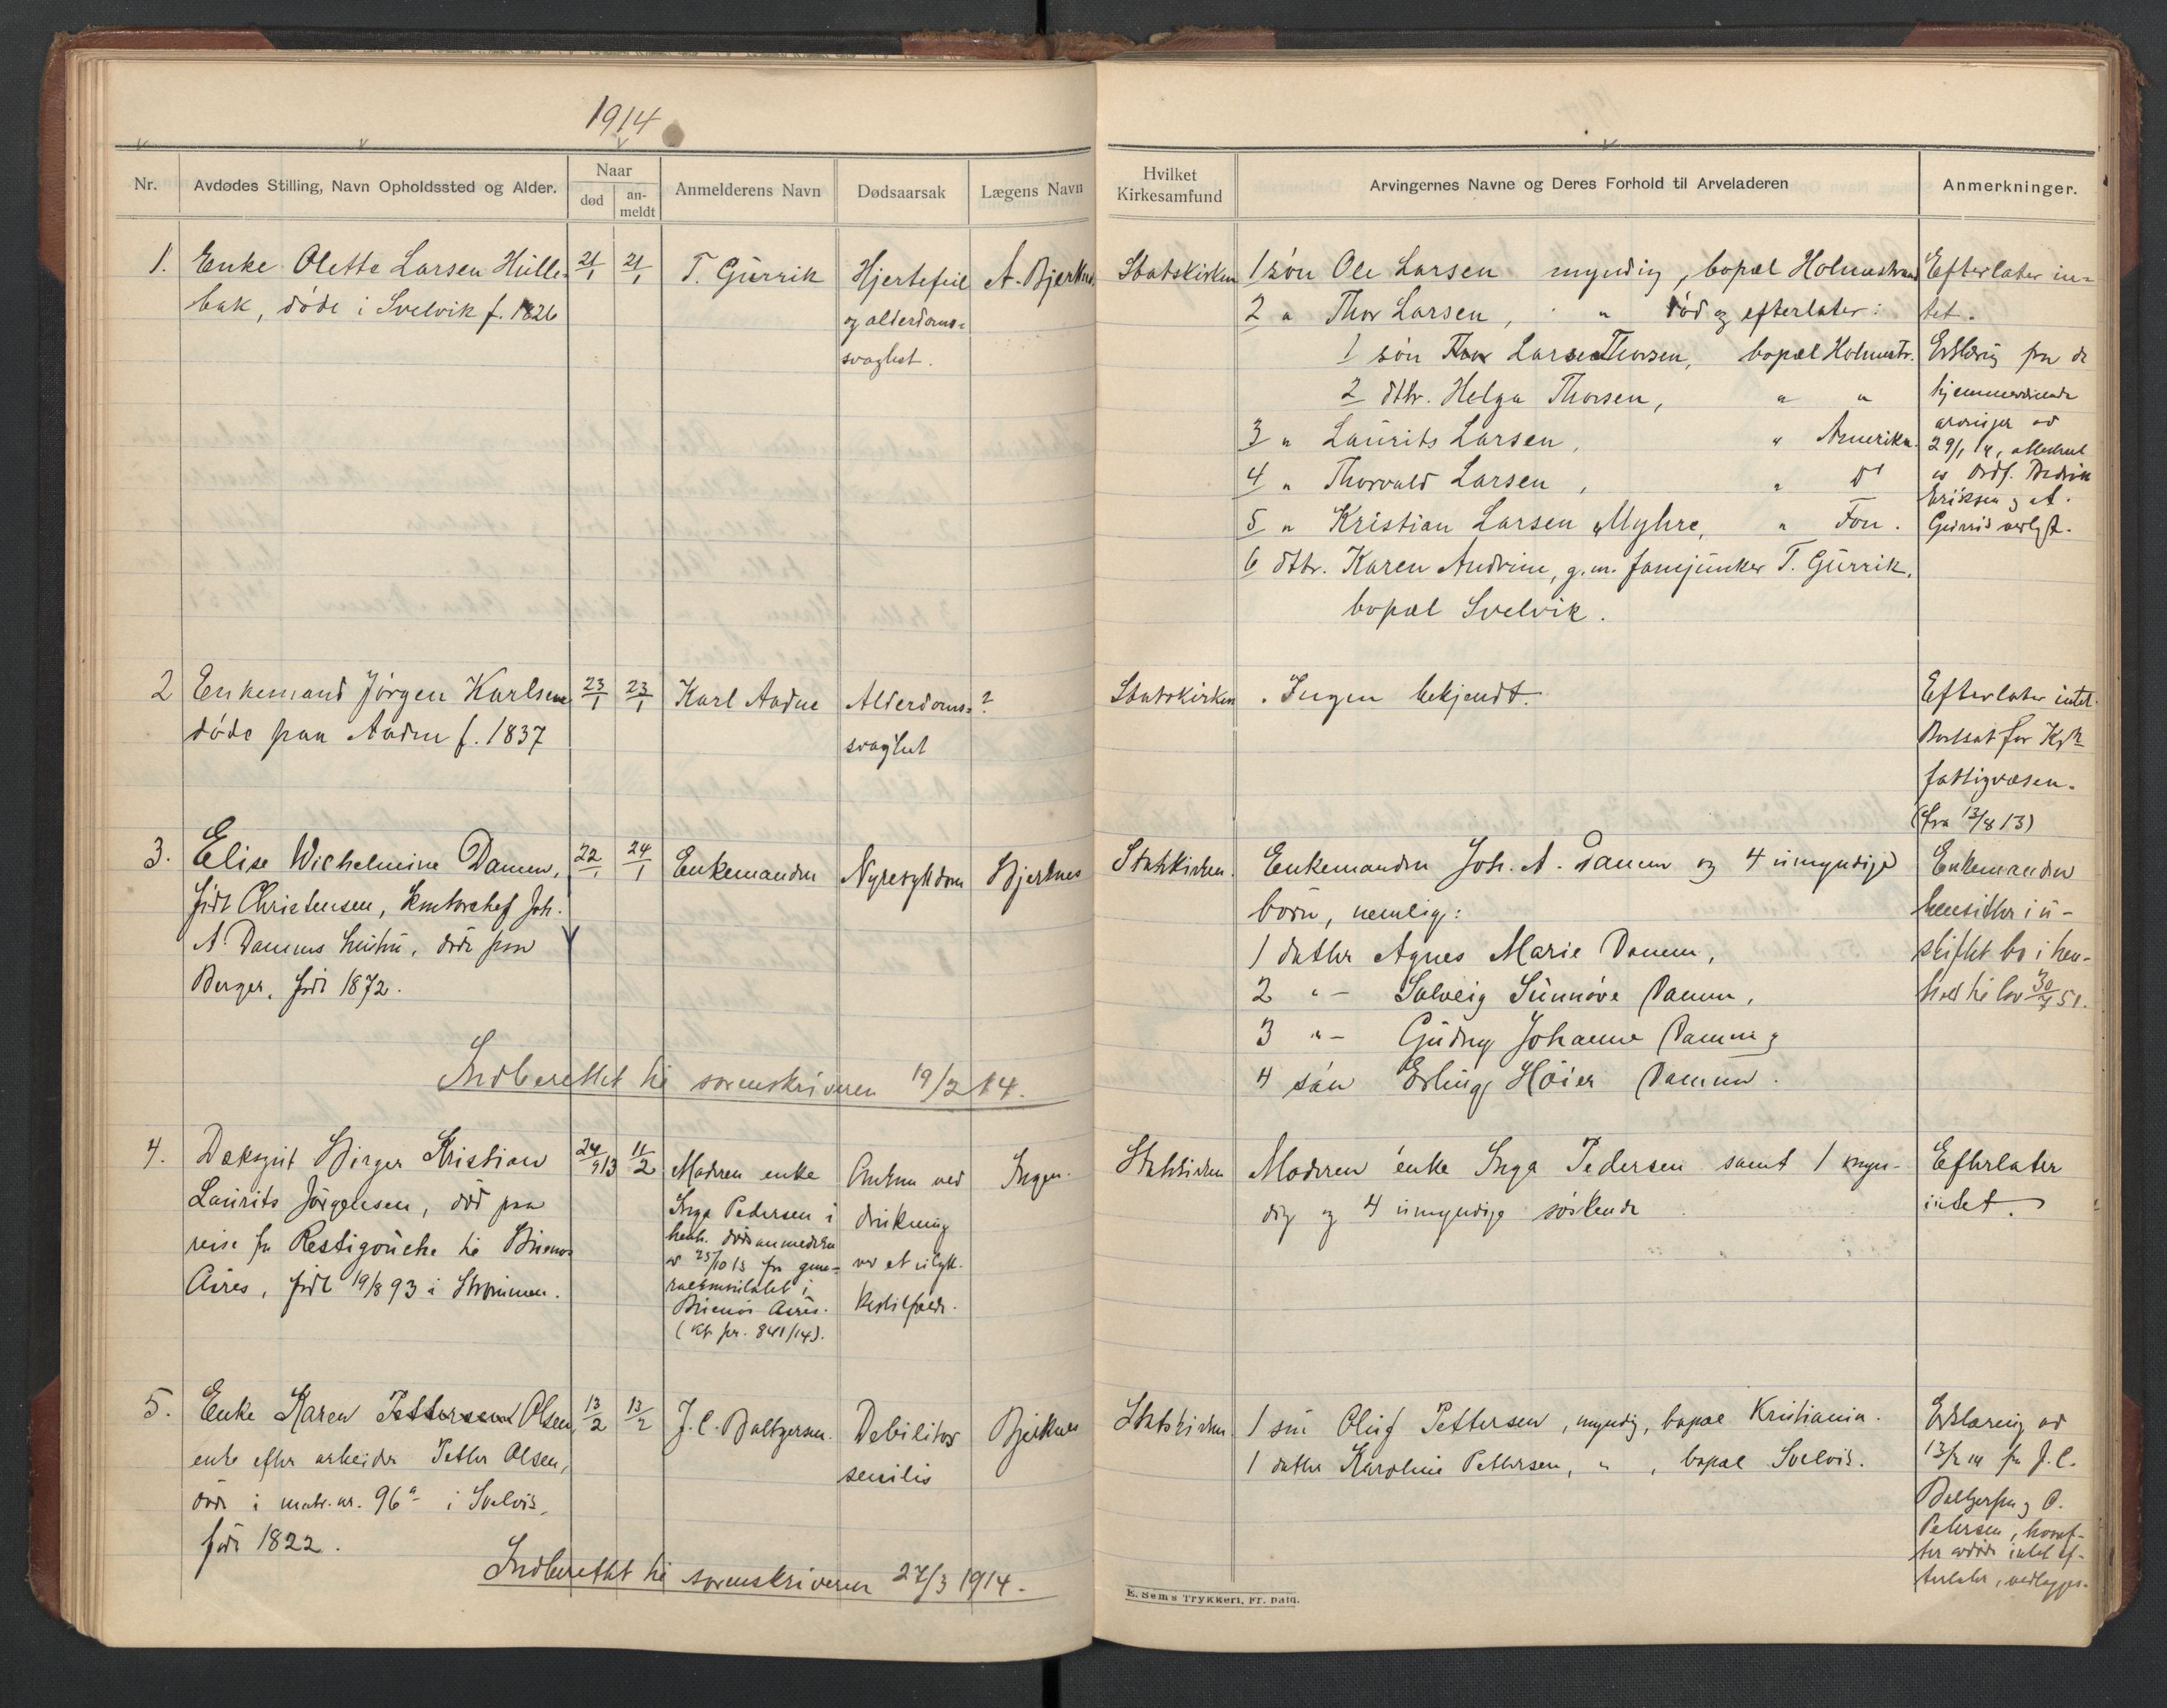 1914
Nr.
Avdødes Stilling, Navn Opholdssted og Alder.
Naar
død
an-
meldt
Anmelderens Navn
Dødsaarsak
Lægens Navn
Hvilket
Kirkesamfund
Arvingernes Navne og Deres Forhold til Arveladeren
Anmerkninger.
1. Enke Olette Larsen Hülle-
bak, døde i Svelvik f. 1826
21/1
21/1
T. Gürrik
Hjertefeil
og alderdoms-
svaghet.
A. Bjerknes
Statskirken
1 søn Ole Larsen myndig, bopæl Holmestrand
2 " Thor Larsen, " død og efterlater:
1 søn Larsen Thorsen, bopæl Holmestr.
2 dtr. Helga Thorsen, " "
3 " Laurits Larsen, " Amerika.
4 " Thorvald Larsen, " do
5 " Kristian Larsen Myhre, " Fon.
6 dtr. Karen Andrine, g.m. fanejunker T. Gürrik,
bopæl Svelvik.
Efterlater in-
tet.
Erklæring fra de
hjemmeværende
arvinger av
29/1 14, attesteret
av Ordf. Fredrik
Eriksen og A.
vedlagt.
2 Enkemand Jørgen Karlsen
døde paa Aadne f. 1837
23/1
23/1
Karl Aadne
Alderdoms-
svaghet
?
Statskirken
Ingen bekjendt.
Efterlater intet.
Bortsat for
fattigvæsen.
(fra 13/8 13)
3. Elise Wilhelmine Damm,
født Christensen, kontorchef Joh.
A. Damms hustru, døde paa
Berger, født 1872.
22/1
24/1
Enkemanden
Nyresykdom
Bjerknes
Statskirken.
Enkemanden Joh. A. Damm og 4 umyndige
børn, nemlig:
1 datter Agnes Marie Damm,
2 " - Solveig Sünnøve Damm,
3 " - Gudny Johanne Damm og
4 søn Erling Høier Damm.
Enkemanden
hensitter i u-
skiftet bo i hen-
hold til lov 30/7 51.
Indberettet til sorenskriveren 19/2 14.
4. Deksgut Birger Kristian
Laurits Jørgensen, død paa
reise fra Restigouche til Buenos
Aires, født 19/8 93 i Strømmen.
24/9 13
11/2
Moderen enke
Inga Pedersen i
henh. dødsanmeldelse
av 25/10 13 fra gene-
ralkonsulatet i
Buenos Aires.
(kfr. jnr. 841/14).
Antas ved
drukning
ved et ulyk-
kestilfælde.
Ingen.
Statskirken
Moderen enke Inga Pedersen samt 1 myn-
dig og 4 umyndige søskende
Efterlater
intet.
5. Enke Karen Pettersen Olsen,
enke efter arbeider Petter Olsen,
døde i matr. nr. 96a i Svelvik,
født 1822.
13/2
13/2
J. C. Baltzersen.
Debilitas
senilis
Bjerknes
Statskirken
1 søn Oluf Pettersen, myndig, bopæl Kristiania.
1 datter Karoline Pettersen, " , bopæl Svelvik.
Erklæring av
13/2 14 fra J. C.
Baltzersen og O.
Petersen, hvoref-
ter avdøde intet ef-
terlater, vedlægges.
Indberettet til sorenskriveren 27/3 1914.
E. Sem's Trykkeri, Fr. hald.